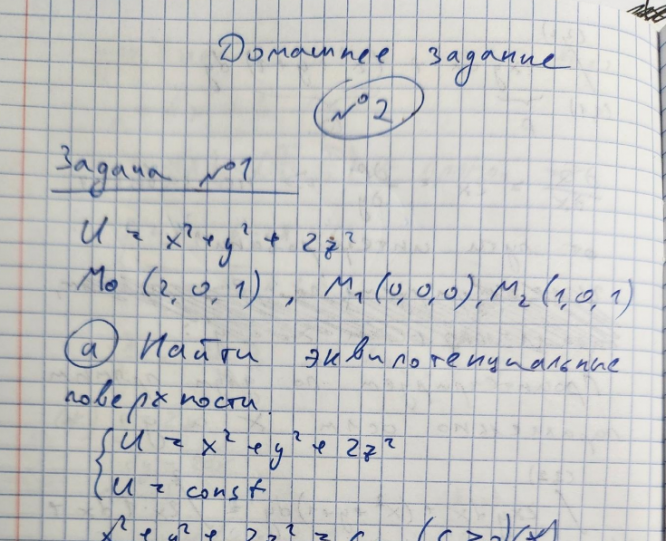 Домашнее задание
№2
Задача №1
U = x² + y² + 2z²
M₀ (2, 0, 1), M₁ (0, 0, 0), M₂ (1, 0, 1)
а Найти эквипотенциальные
поверхности.
{ U = x² + y² + 2z²
{ U = const
x² + y² + 2z² = C (C > 0) (*)